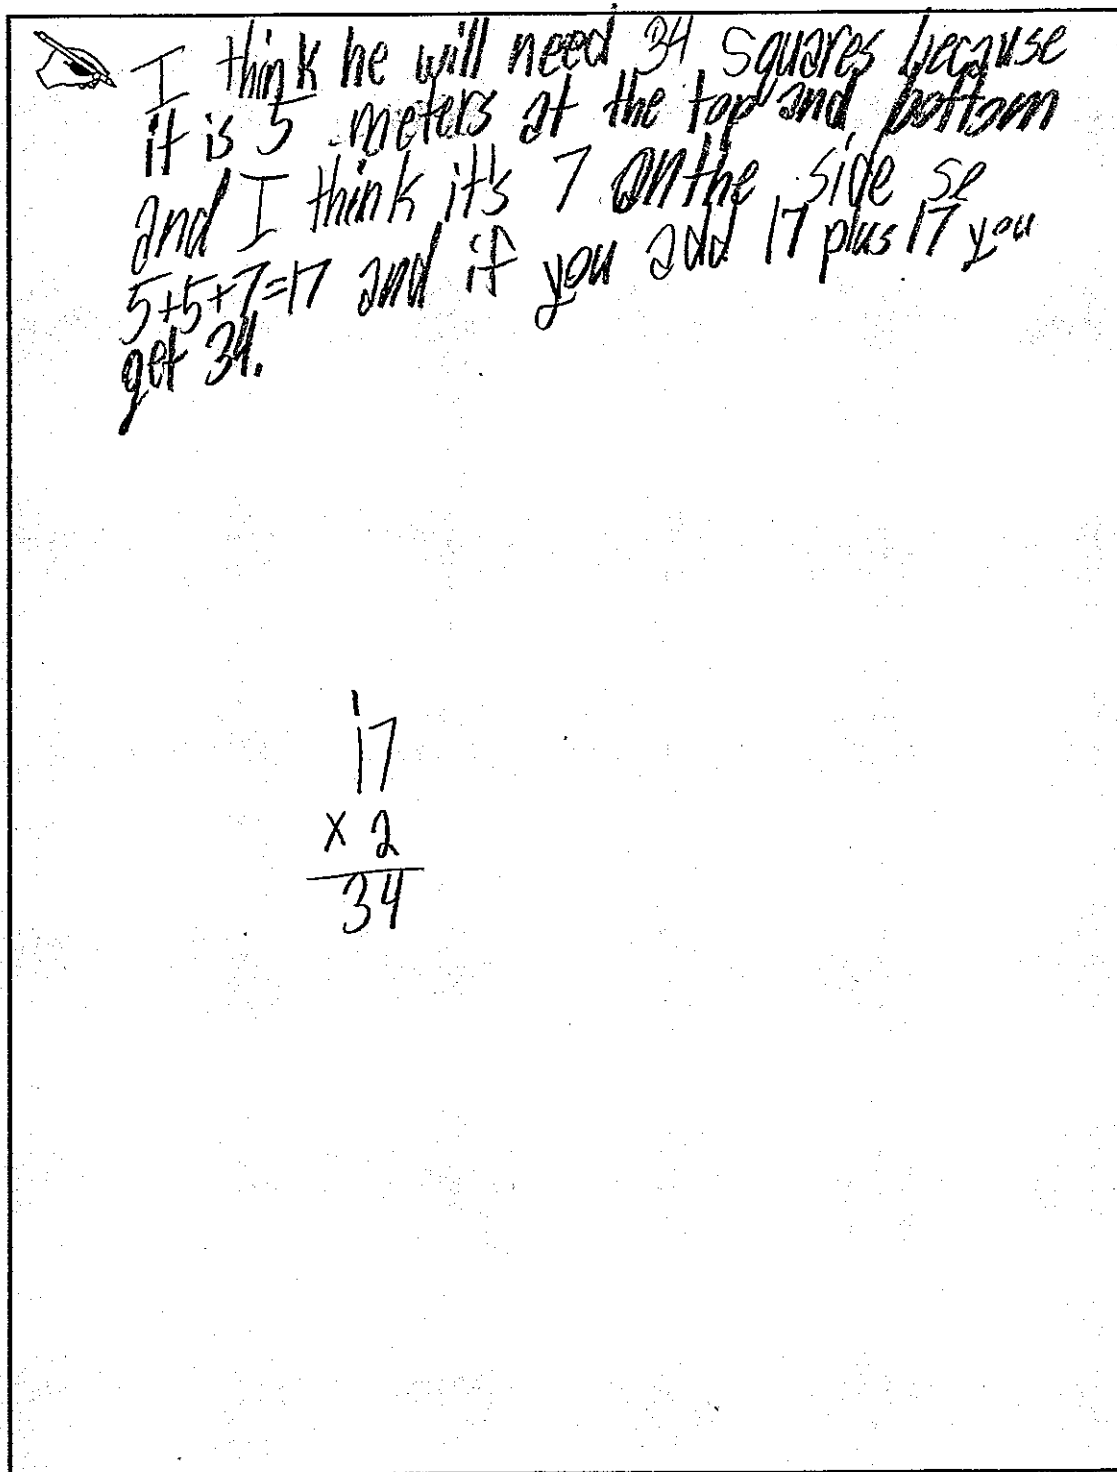 I think he will need 34 squares because
it is 5 meters at the top and bottom
and I think it's 7 on the side so
5+5+7=17 and if you add 17 plus 17 you
get 34.
1
17
x 2
34